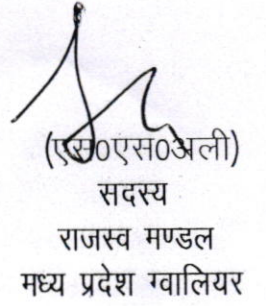 (एस0एस0अली)
सदस्य
राजस्व मण्डल
मध्य प्रदेश ग्वालियर